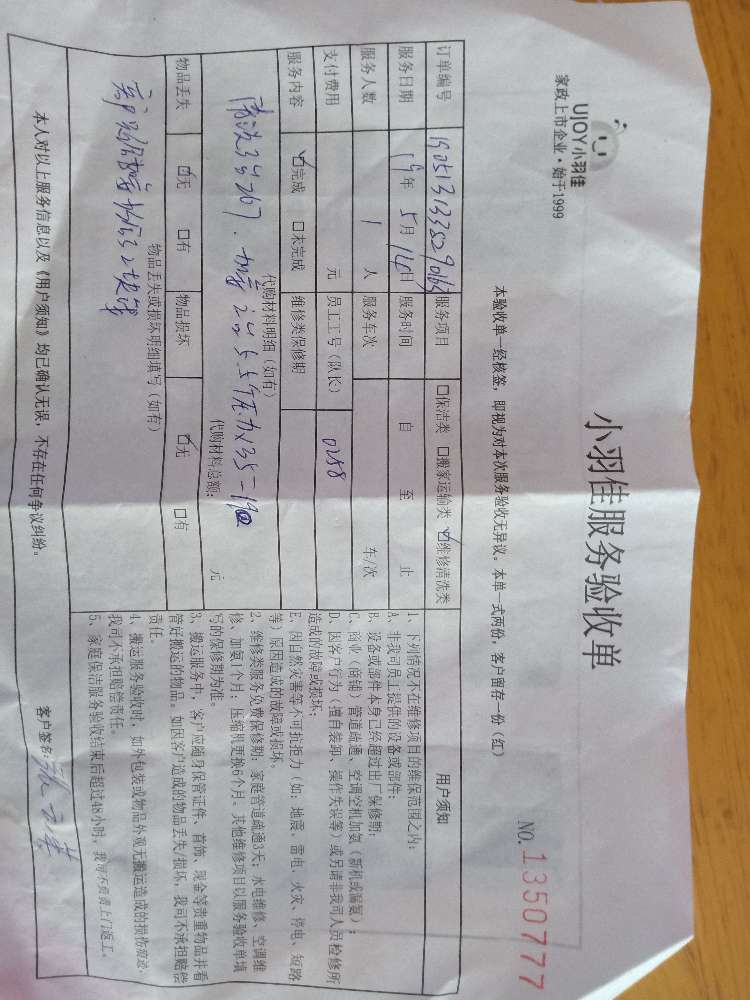 UJOY小羽佳
家政上市企业·始于1999
小羽佳服务验收单
NO. 1350777
本验收单一经核签，即视为对本次服务验收无异议。本单一式两份，客户留存一份（红）
订单编号 服务项目 □保洁类 □搬家运输类 ☑维修清洗类
服务日期 19年 5月 14日 服务时间 自 至 止
服务人数 1 人 服务车次 车/次
支付费用 元 员工工号（队长） 0258
服务内容 ☑完成 □未完成 维修类保修期
代购材料明细（如有）
代购材料总额： 元
物品丢失 ☑无 □有 物品损坏 ☑无 □有
物品丢失或损坏明细填写（如有）
用户须知
1、下列情况不在维修项目的维保范围之内：
A、非我司员工提供的设备或部件；
B、设备或部件本身已经超过出厂保修期；
C、商业（商铺）管道疏通、空调空机加氨（新机或漏氨）；
D、因客户行为（擅自装卸、操作失误等）或另请非我司人员检修所
造成的故障或损坏；
E、因自然灾害等不可抗拒力（如：地震、雷电、火灾、停电、短路
等）原因造成的故障或损坏。
2、维修类服务免费保修期：家庭管道疏通3天；水电维修、空调维
修、加氨1个月；压缩机更换6个月。其他维修项目以服务验收单填
写的保修期为准。
3、搬运服务中，客户应随身保管证件、首饰、现金等贵重物品并看
管好搬运的物品。如因客户造成的物品丢失/损坏，我司不承担赔偿
责任。
4、搬运服务验收时，如外包装或物品外观无搬运造成的损伤痕迹，
我司不承担赔偿责任。
5、家庭保洁服务验收结束后超过48小时，我司不负责上门返工。
本人对以上服务信息以及《用户须知》均已确认无误，不存在任何争议纠纷。 客户签名：